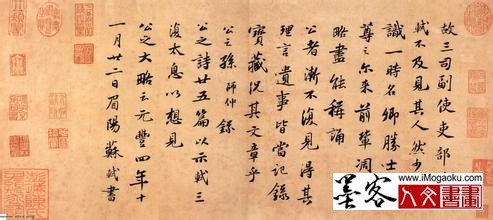 故三司副使吏部
軾不及見其人然少
識一時名卿勝士
尊之尒來前輩凋
略盡能稱誦
公者漸不復見得其
理言遺事皆當記錄
寶藏況其文章乎
公之孫師仲錄
公之詩廿五篇以示軾三
復太息以想見
公之大略云元豐四年十
一月廿二日眉陽蘇軾書
www.iMogaoku.com
墨客
人文書畫